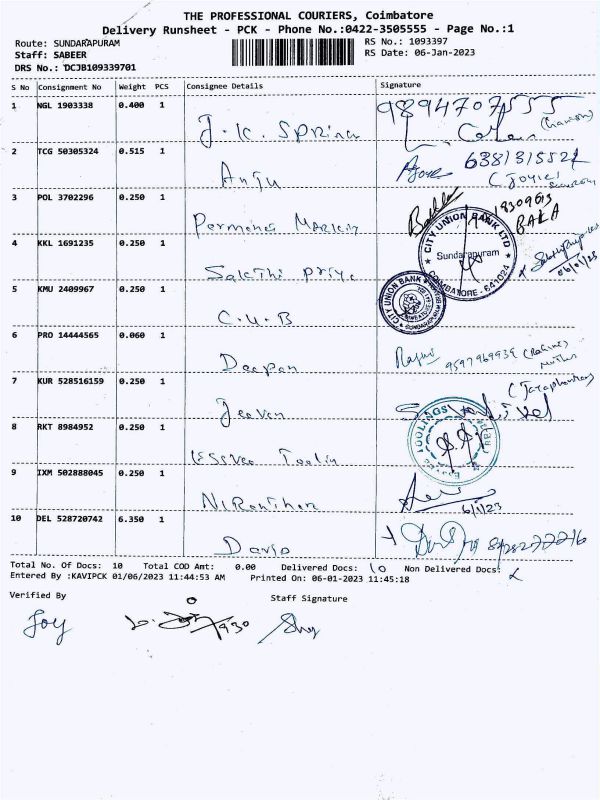 THE PROFESSIONAL COURIERS, Coimbatore
Delivery Runsheet - PCK - Phone No.:0422-3505555 - Page No.:1
Route: SUNDARAPURAM
RS No.: 1093397
Staff: SABEER
RS Date: 06-Jan-2023
DRS No.: DCJB109339701
S No Consignment No Weight PCS Consignee Details Signature
1 NGL 1903338 0.400 1
J.K. Spring
2 TCG 50305324 0.515 1
Anju
3 POL 3702296 0.250 1
4 KKL 1691235 0.250 1
Sakthi Priya
CITY UNION BANK LTD
Sundarapuram
COIMBATORE - 641024
06/01/23
5 KMU 2409967 0.250 1
C.U.B
CITY UNION BANK
6 PRO 14444565 0.060 1
Deepan
7 KUR 528516159 0.250 1
Jeevan
8 RKT 8984952 0.250 1
TOOLINGS
9 IXM 502888045 0.250 1
Niranthan
6/1/23
10 DEL 528720742 6.350 1
David
Total No. Of Docs: 10 Total COD Amt: 0.00 Delivered Docs: 10 Non Delivered Docs:
Entered By :KAVIPCK 01/06/2023 11:44:53 AM Printed On: 06-01-2023 11:45:18
Verified By Staff Signature
Joy